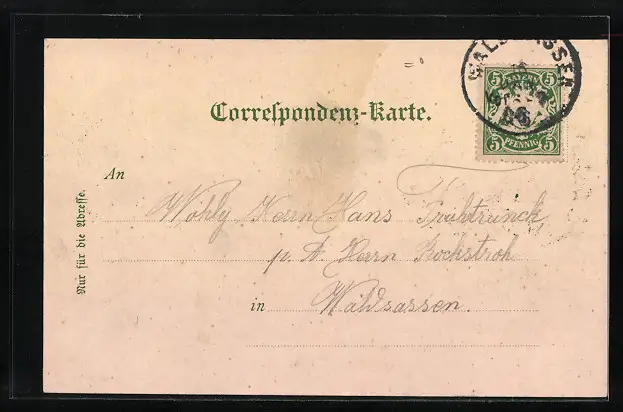 WALDSASSEN
5 BAYERN 5
5 PFENNIG 5
Correspondenz-Karte.
An
Nur für die Adresse.
Wohlg. Herrn Hans Fruhtrunck
p. A. Herrn Rockstroh
in Waldsassen.